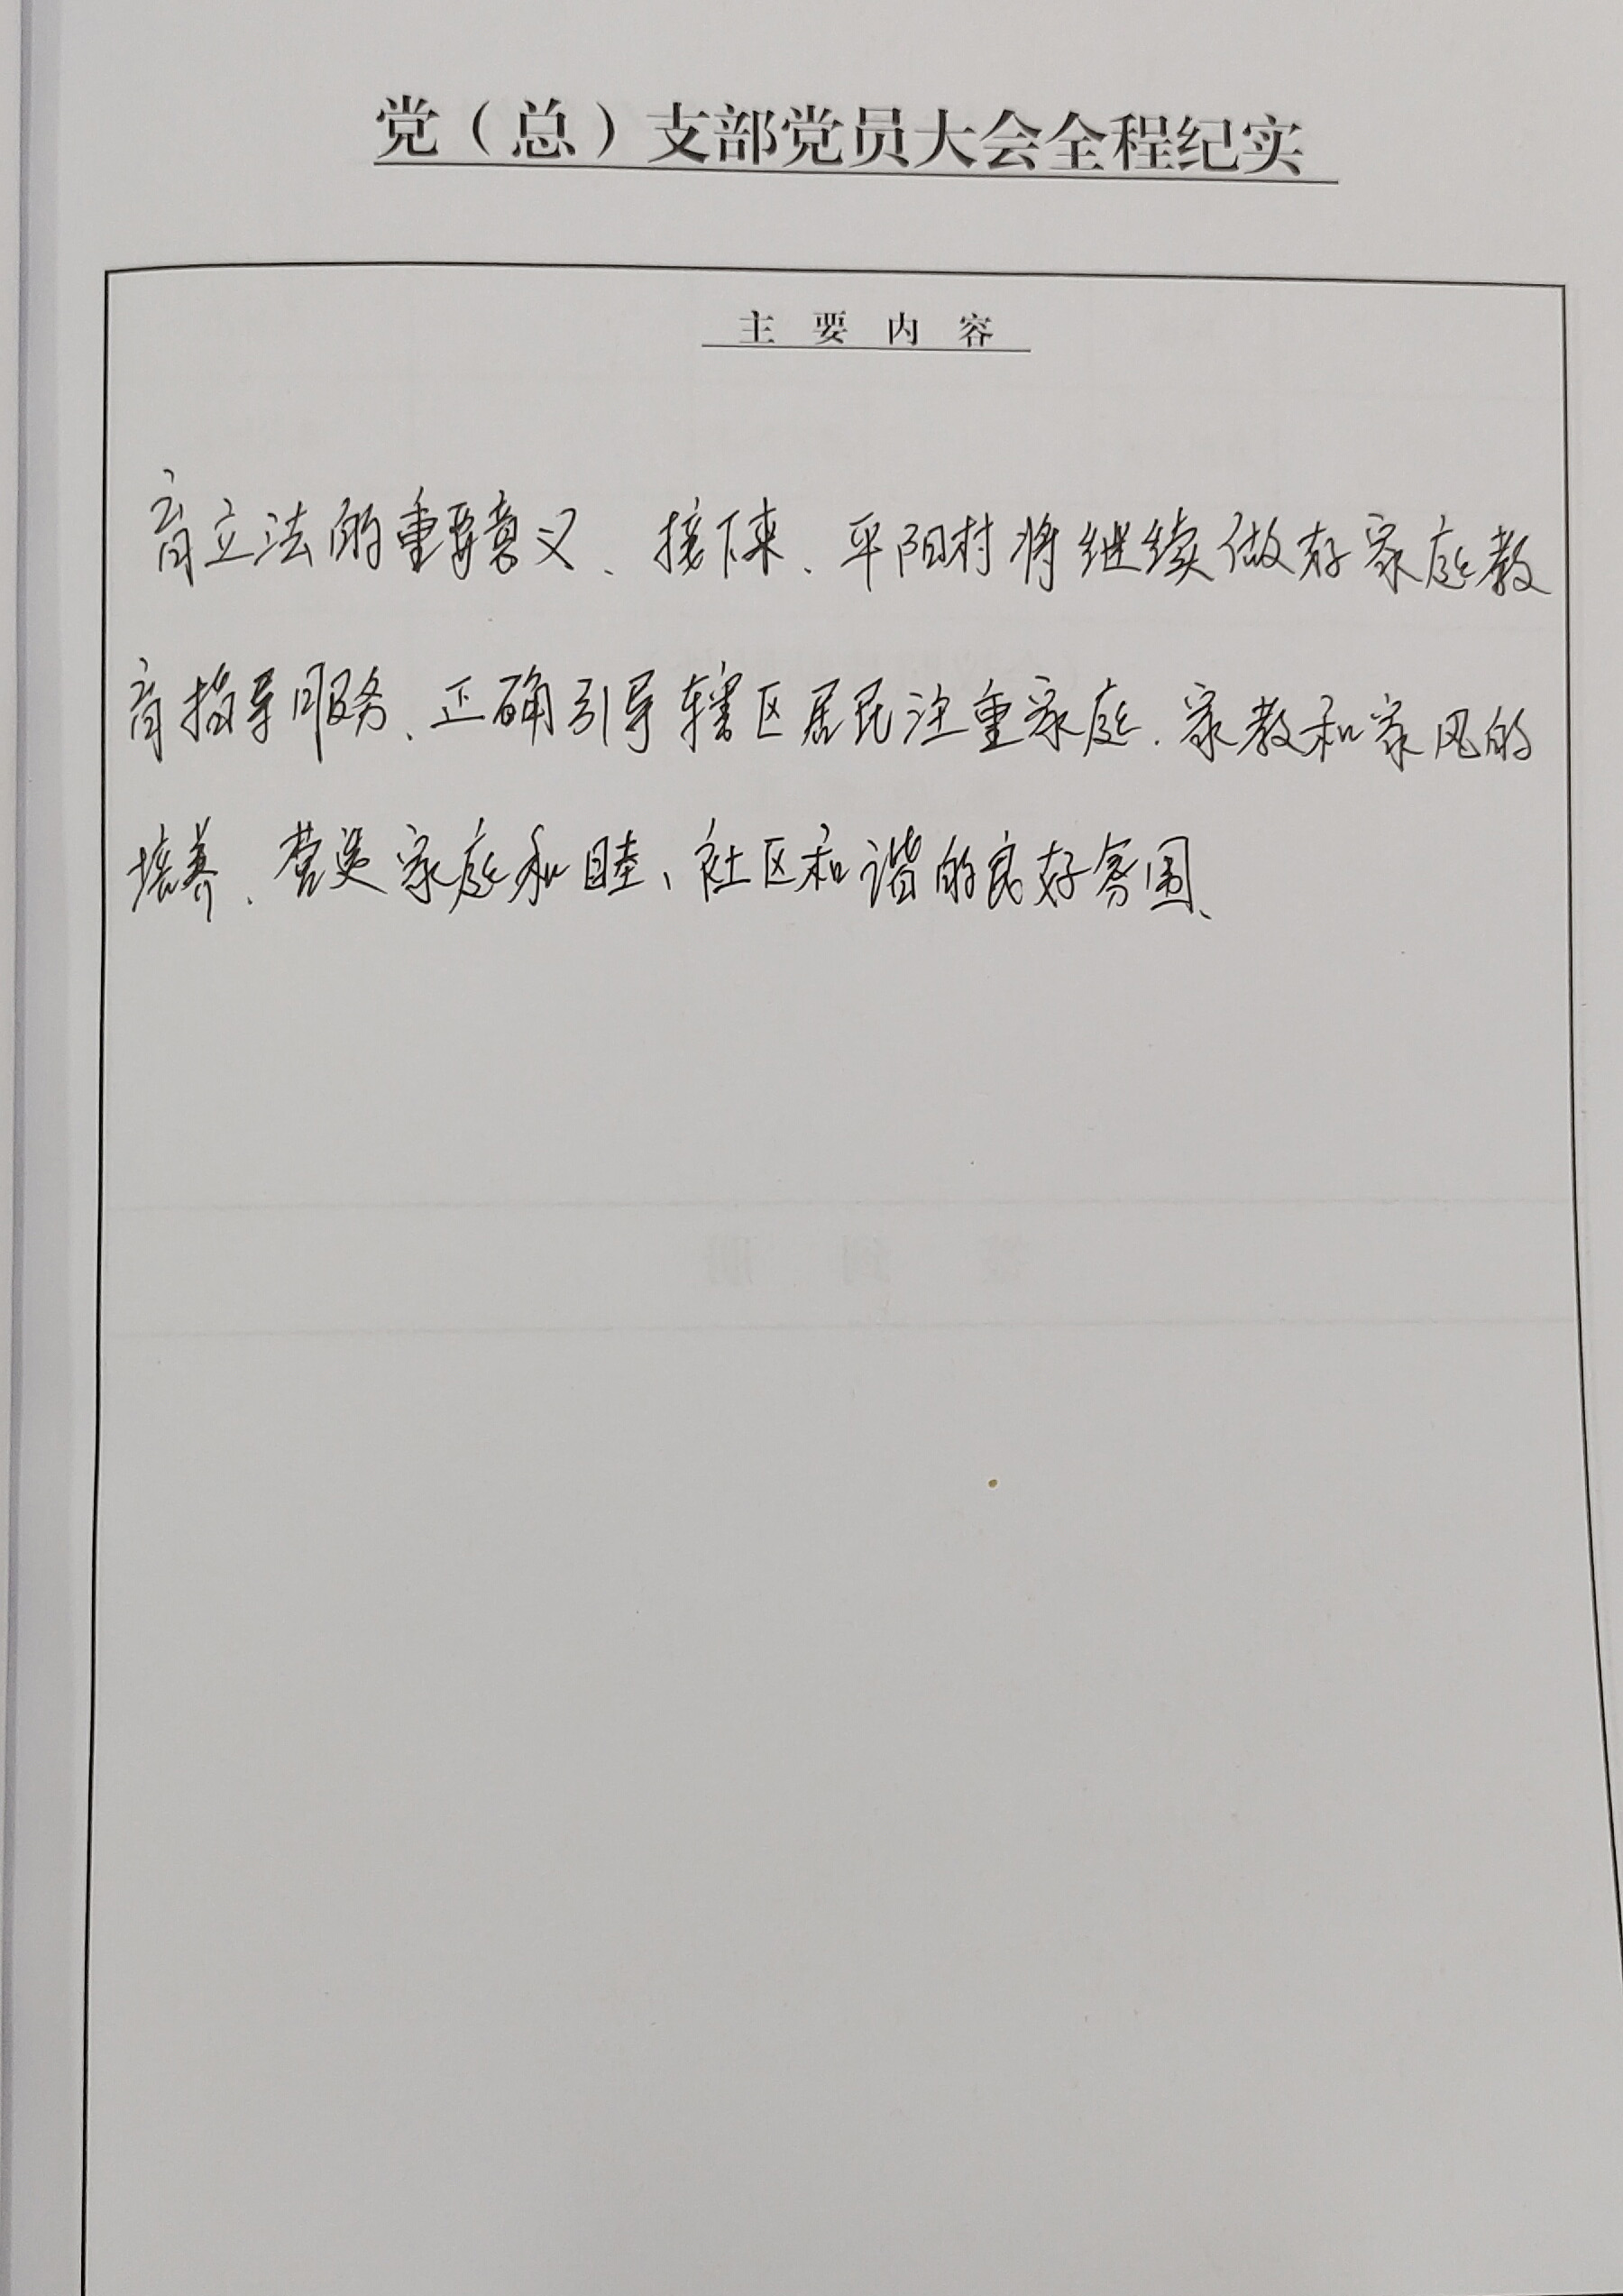 党（总）支部党员大会全程纪实
主要内容
育立法的重要意义、接下来、平阳村将继续做好家庭教
育指导服务、正确引导辖区居民注重家庭、家教和家风的
培养、营造家庭和睦、社区和谐的良好氛围、